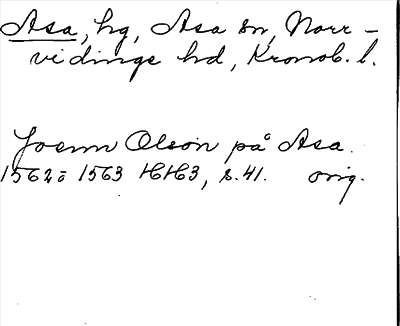 Asa, hg, Asa sn, Norr-
vidinge hd, Kronob. l.
Joenn Olson på Asa.
1562 = 1563 HH3, s. 41. orig.